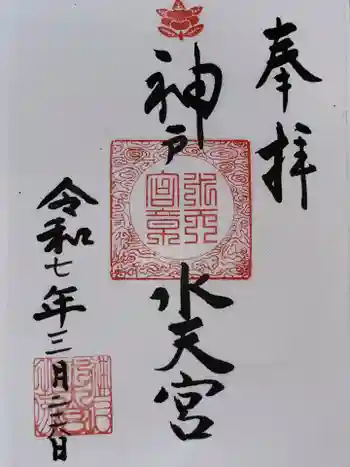 奉拝
神戸水天宮
令和七年三月二十六日